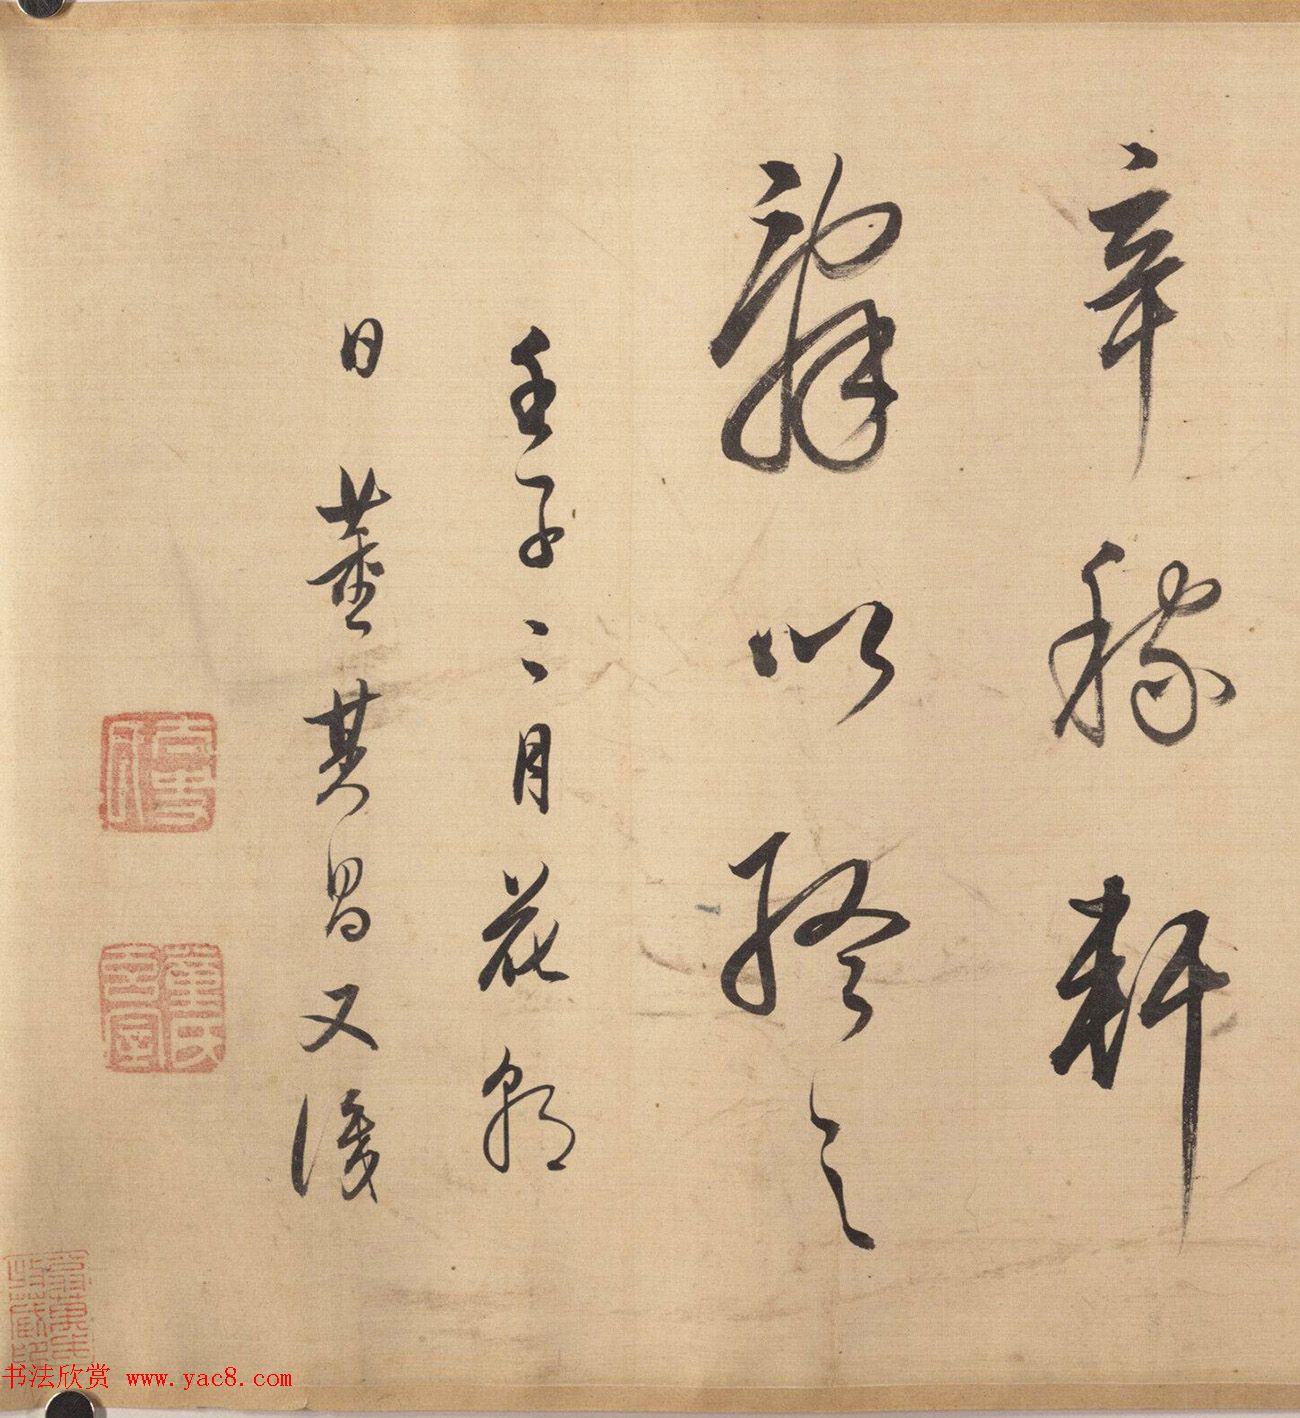 辛稼軒
辭以終之
壬子二月花朝
日董其昌又
董氏
玄宰
书法欣赏 www.yac8.com